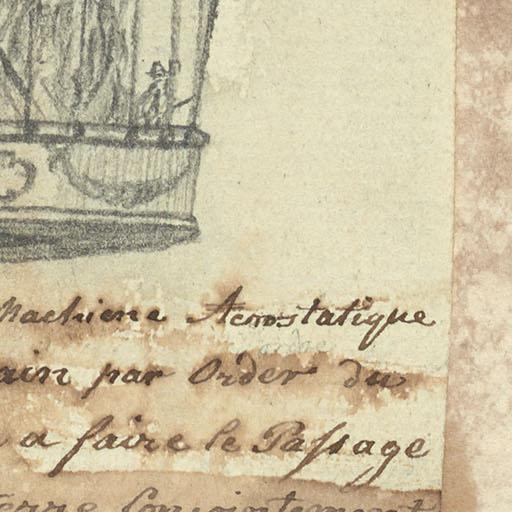 Machiene Aerostatique
ain par Order du
a faire le Passage
terre Conjointement